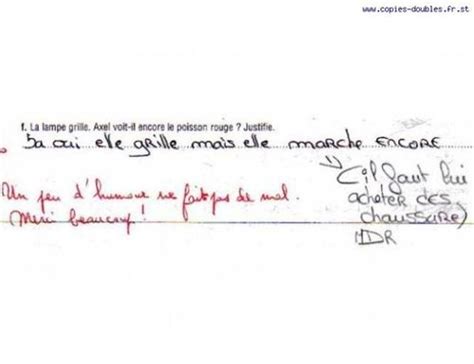 www.copies-doubles.fr.st
f. La lampe grille. Axel voit-il encore le poisson rouge ? Justifie.
Ba oui elle grille mais elle marche encore
(il faut lui
acheter des
chaussure)
MDR
Un peu d'humour ne fait pas de mal.
Merci beaucoup !